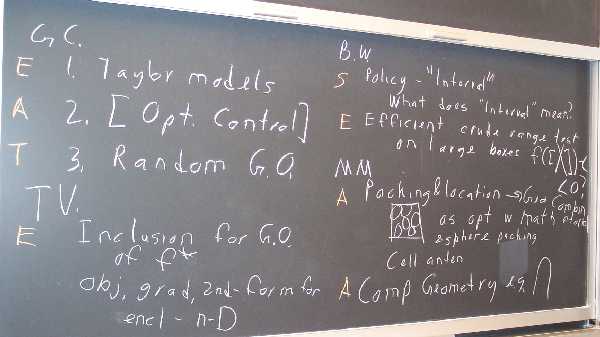 G.C.
E 1. Taylor models
A 2. [Opt. Control]
T 3. Random G.O.
TV.
E Inclusion for G.O.
of f*
obj, grad, 2nd-form for
encl - n-D
B.W
S Policy - "Interval"
What does "Interval" mean?
E Efficient crude range test
on large boxes f([X])
<0?
MM
A Packing & location → Grid Combin
as opt w math
sphere packing
Cell anten
A Comp Geometry eg. ∩